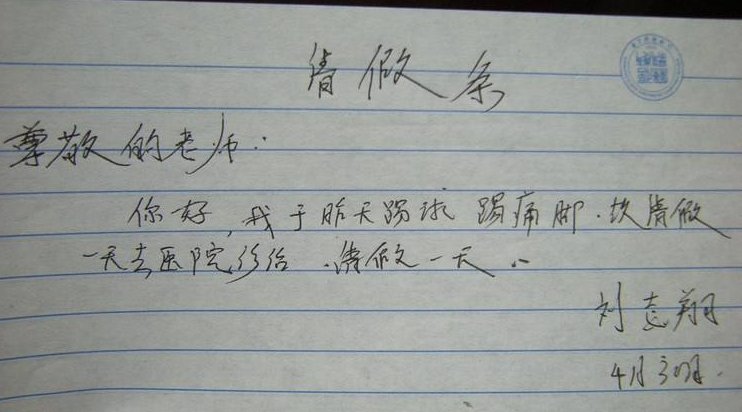 请假条
尊敬的老师:
你好,我于昨天踢球踢痛脚.故请假
一天去医院诊治.请假一天.
刘志翔
4月30日.